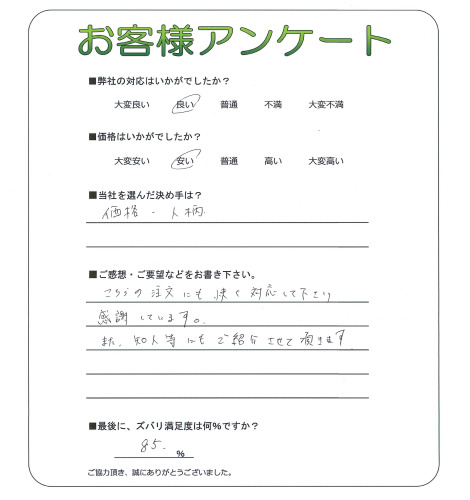 お客様アンケート
■弊社の対応はいかがでしたか？
大変良い 良い 普通 不満 大変不満
■価格はいかがでしたか？
大変安い 安い 普通 高い 大変高い
■当社を選んだ決め手は？
価格・人柄
■ご感想・ご要望などをお書き下さい。
こちらの注文にも快く対応して下さり
感謝しています。
また、知人等にもご紹介させて頂きます
■最後に、ズバリ満足度は何%ですか？
85. %
ご協力頂き、誠にありがとうございました。